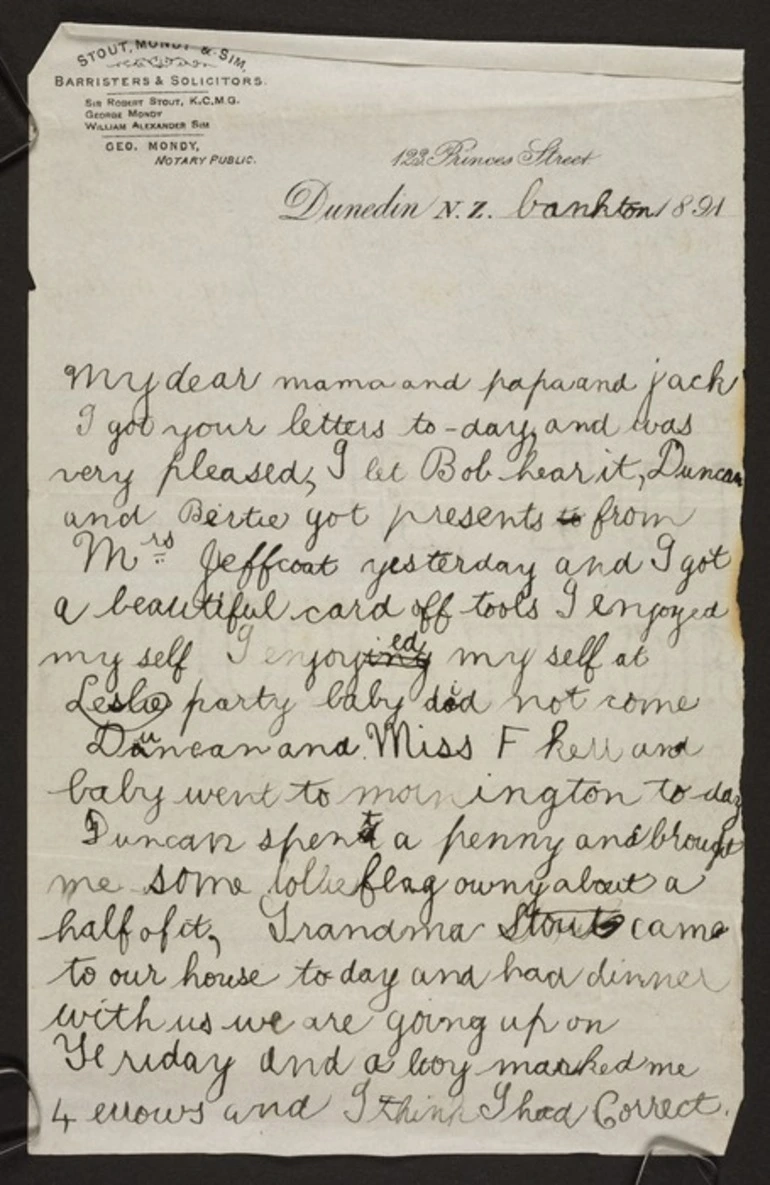 STOUT, MONDY & SIM,
BARRISTERS & SOLICITORS.
SIR ROBERT STOUT, K.C.M.G.
GEORGE MONDY
WILLIAM ALEXANDER SIM
GEO. MONDY,
NOTARY PUBLIC.
123 Princes Street
Dunedin N.Z. bankton 1891
My dear mama and papa and jack
I got your letters to-day, and was
very pleased, I let Bob hear it, Duncan
and Bertie got presents to from
Mrs Jeffcoat yesterday and I got
a beautiful card off tools I enjoyed
my self I enjoyed my self at
Leslie party baby did not come
Duncan and Miss F Kerr and
baby went to mornington to day
Duncan spent a penny and brought
me some lollie flag owny about a
half of it, Grandma Stout came
to our house to day and had dinner
with us we are going up on
Friday and a boy marked me
4 errows and I think I had Correct.